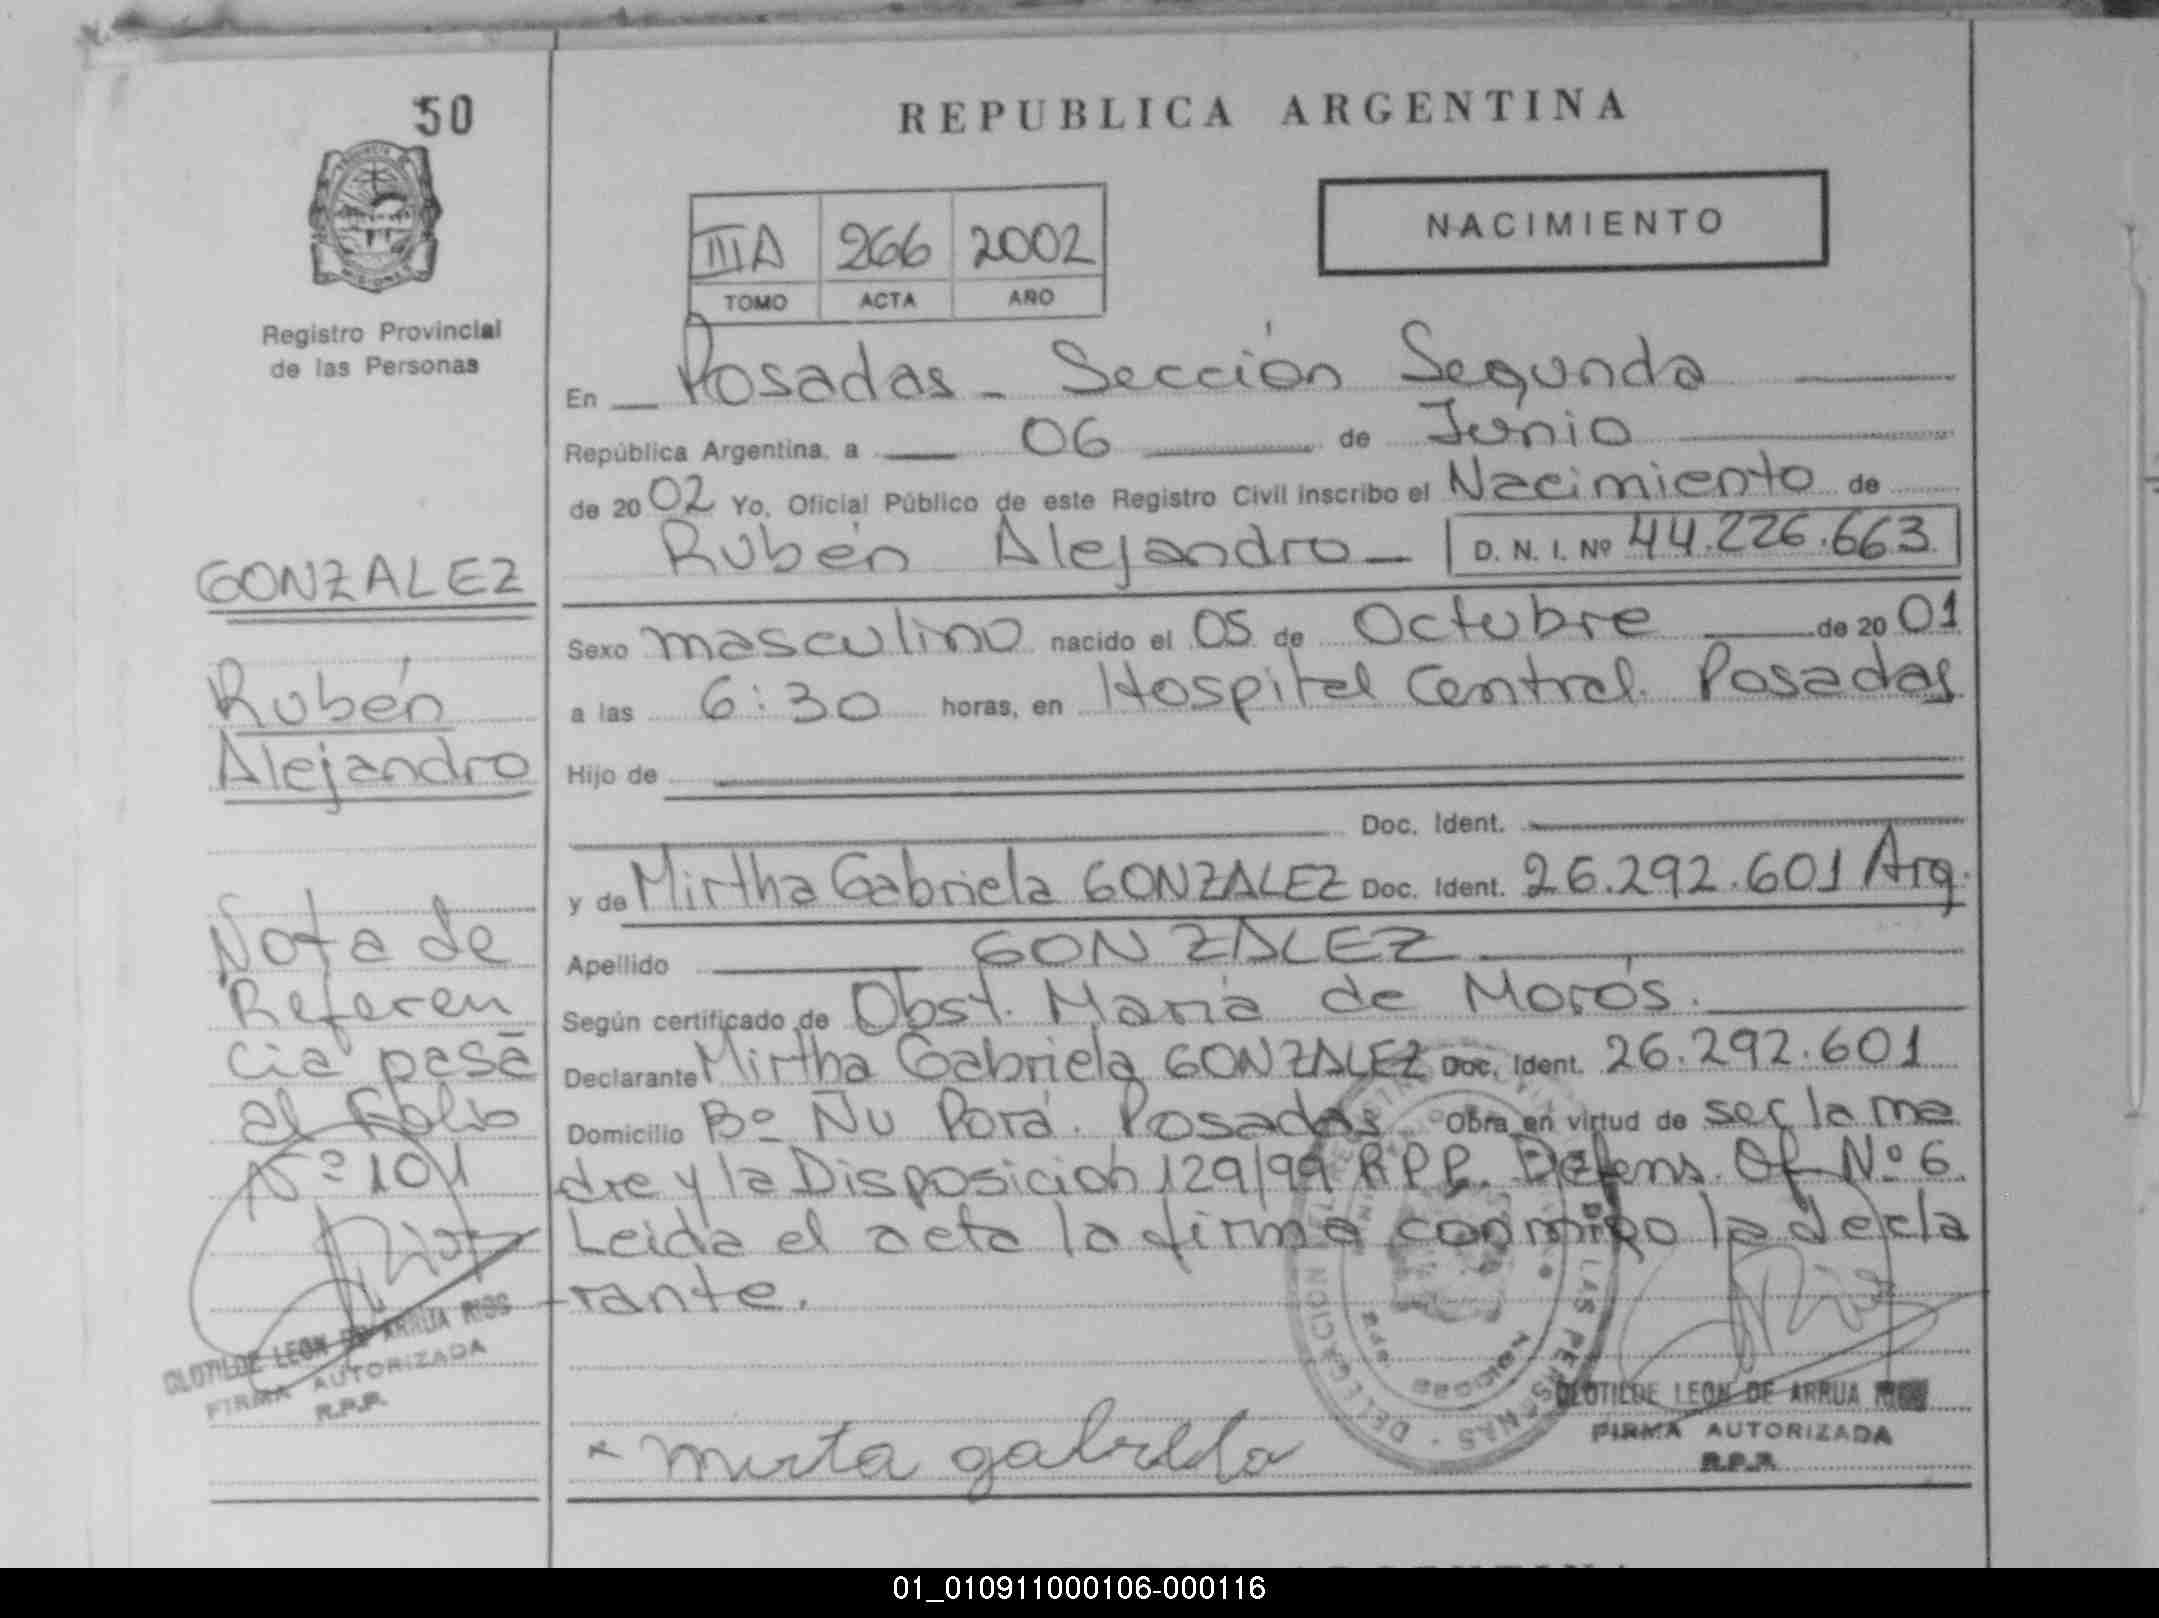 50
REPUBLICA ARGENTINA
NACIMIENTO
IIIA 266 2002
TOMO ACTA AÑO
Registro Provincial
de las Personas
En Posadas - Sección Segunda
República Argentina, a 06 de Junio
de 2002 Yo, Oficial Público de este Registro Civil inscribo el Nacimiento de
Rubén Alejandro - D. N. I. Nº 44.226.663
Sexo masculino nacido el 05 de Octubre de 2001
a las 6:30 horas, en Hospital Central. Posadas
Hijo de
Doc. Ident.
y de Mirtha Gabriela GONZALEZ Doc. Ident. 26.292.601 Arg.
Apellido GONZALEZ
Según certificado de Obst. María de Morós.
Declarante Mirtha Gabriela GONZALEZ Doc. Ident. 26.292.601
Domicilio Bº Ñu Porá. Posadas Obra en virtud de ser la ma
dre y la Disposición 129/99 R.P.P. Defens. Of Nº 6.
Leida el acta la firma conmigo la decla
rante.
GONZALEZ
Rubén
Alejandro
Nota de
Referen
cia pasa
al folio
Nº 101
CLOTILDE LEON DE ARRUA RIOS
FIRMA AUTORIZADA
R.P.P.
DELEGACION
LAS PERSONAS
CLOTILDE LEON DE ARRUA
FIRMA AUTORIZADA
R.P.P.
x mirta gabriela
01_010911000106-000116